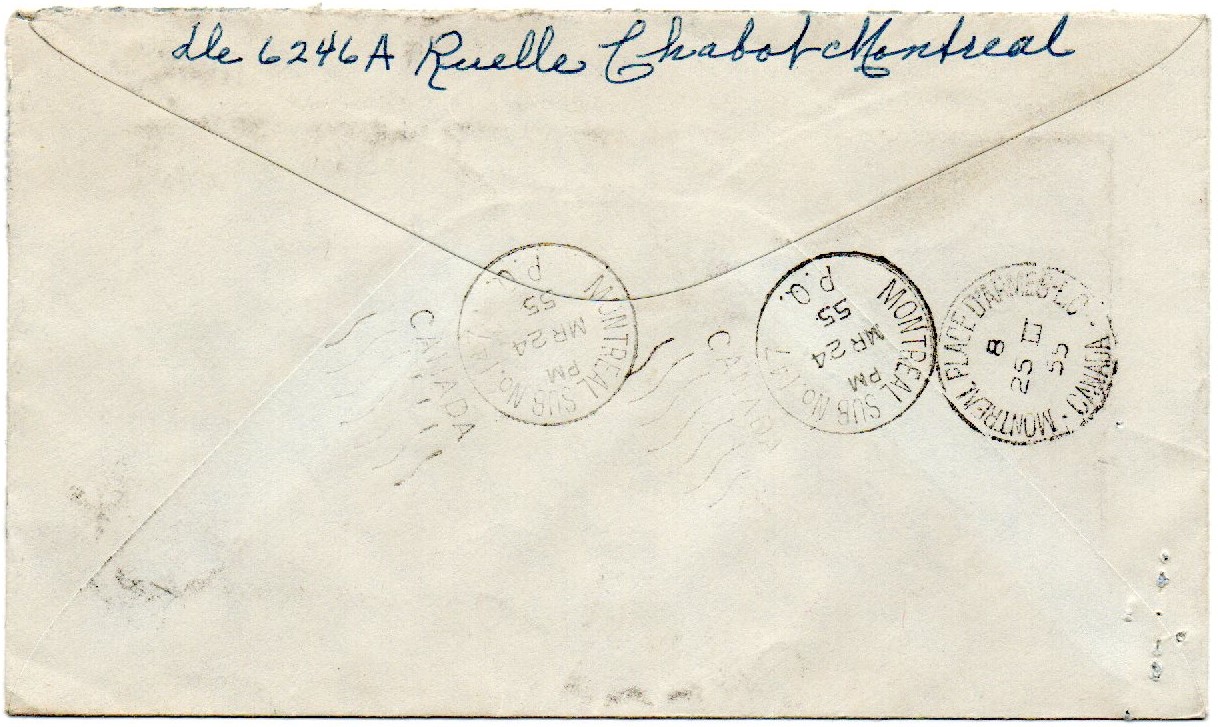 De 6246A Ruelle Chabot Montreal
MONTREAL SUB No.
P.Q.
PM
MR 24
55
CANADA
MONTREAL SUB No.
P.Q.
PM
MR 24
55
CANADA
MONTREAL, PLACE D'ARMES-L.C. · CANADA ·
8
25 III
55